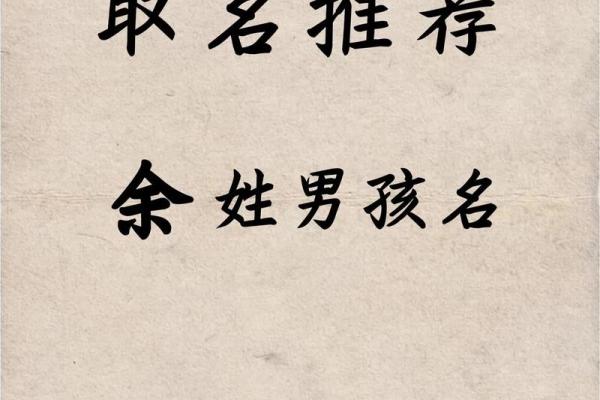 取名推荐
余姓男孩名